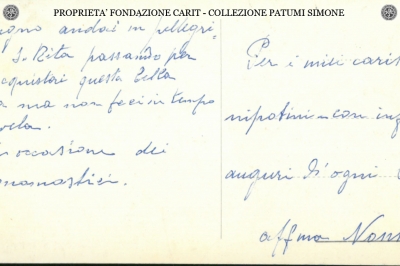 PROPRIETA' FONDAZIONE CARIT - COLLEZIONE PATUMI SIMONE
andai in pellegri-
S. Rita passando per
acquistai questa bella
ma non feci in tempo
occasione dei
onomastici.
Per i miei cari
nipotini con
auguri d'ogni
affma Nonn